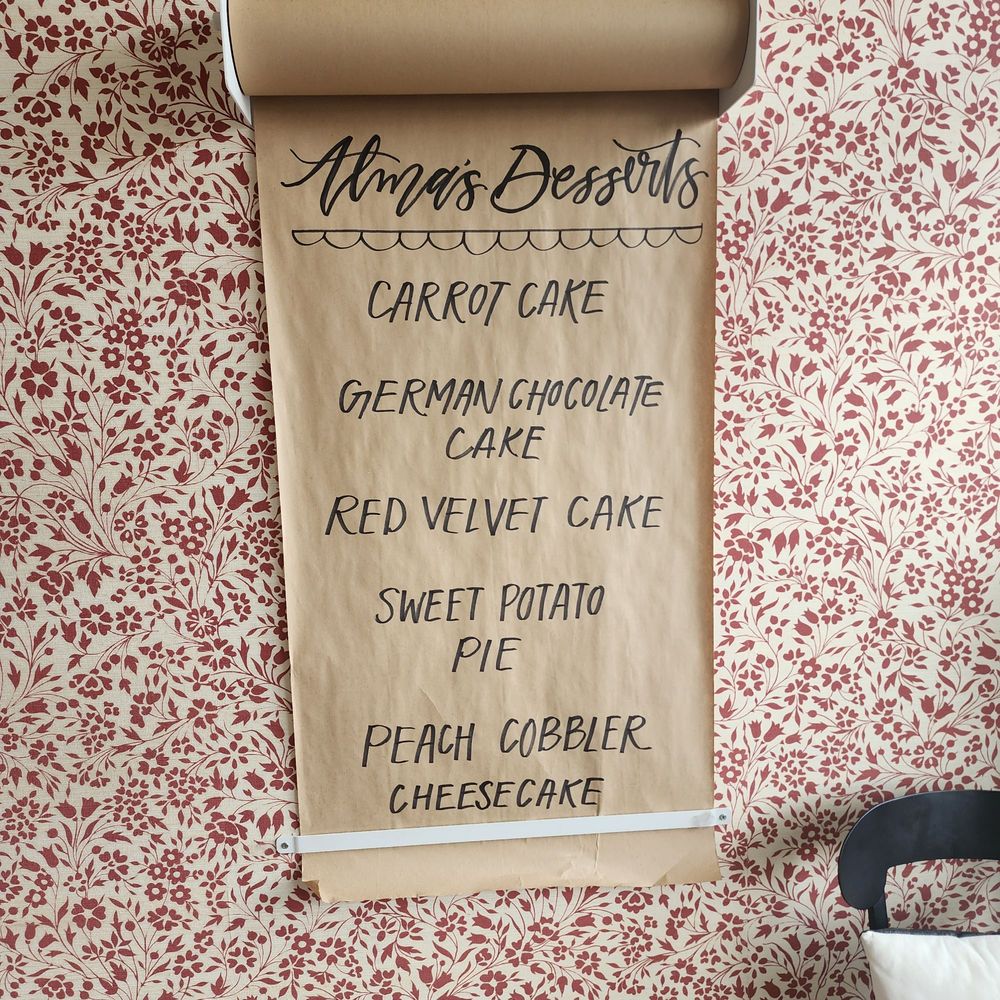 Alma's Desserts
CARROT CAKE
GERMAN CHOCOLATE
CAKE
RED VELVET CAKE
SWEET POTATO
PIE
PEACH COBBLER
CHEESECAKE